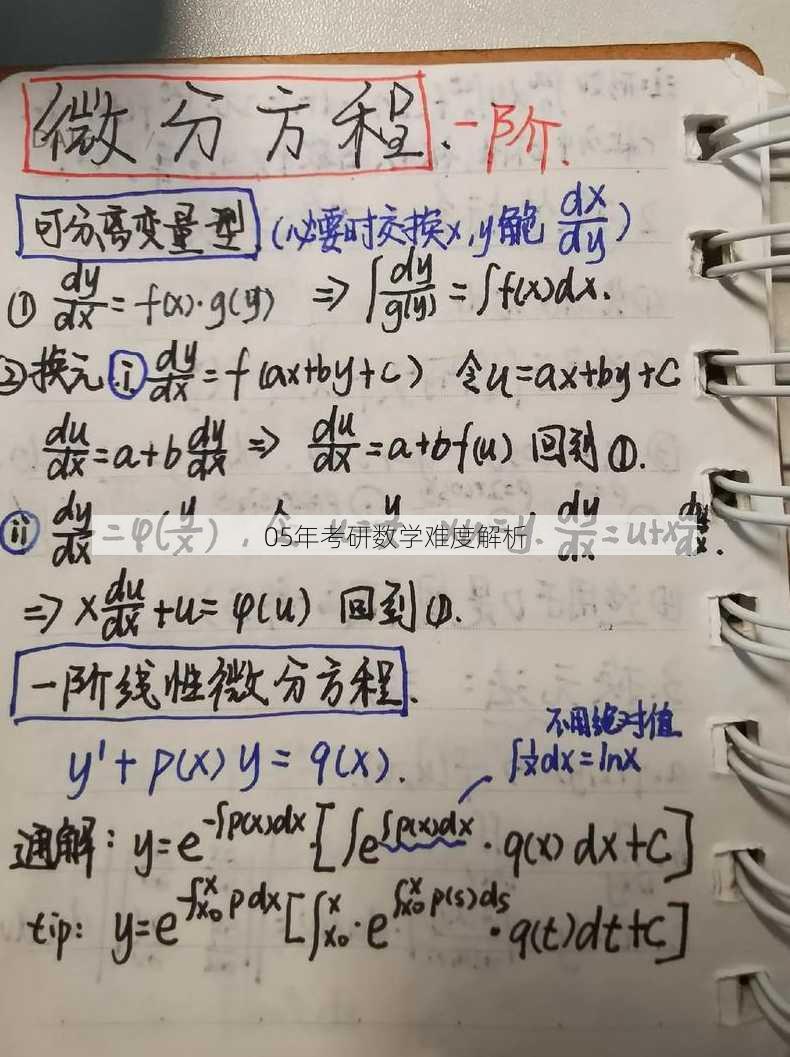 微分方程.一阶.
可分离变量型 (必要时交换x,y解 dx/dy)
① dy/dx = f(x)·g(y) ⇒ ∫dy/g(y) = ∫f(x)dx.
②换元 ⓘ dy/dx = f(ax+by+c) 令u=ax+by+c
du/dx = a+b dy/dx ⇒ du/dx = a+bf(u) 回到①.
ⅱ dy/dx = φ(y/x), dy/dx = u+x
05年考研数学难度解析
⇒ x du/dx + u = φ(u) 回到①.
一阶线性微分方程.
y'+p(x)y=q(x).
不用绝对值
∫1/x dx = lnx
通解: y=e^{-∫p(x)dx}·[∫e^{∫p(x)dx}·q(x)dx+C]
tip: y=e^{-∫_{x₀}^{x} p dx}[∫_{x₀}^{x}·e^{∫_{x₀}^{x} p(s)ds}·q(t)dt+C]